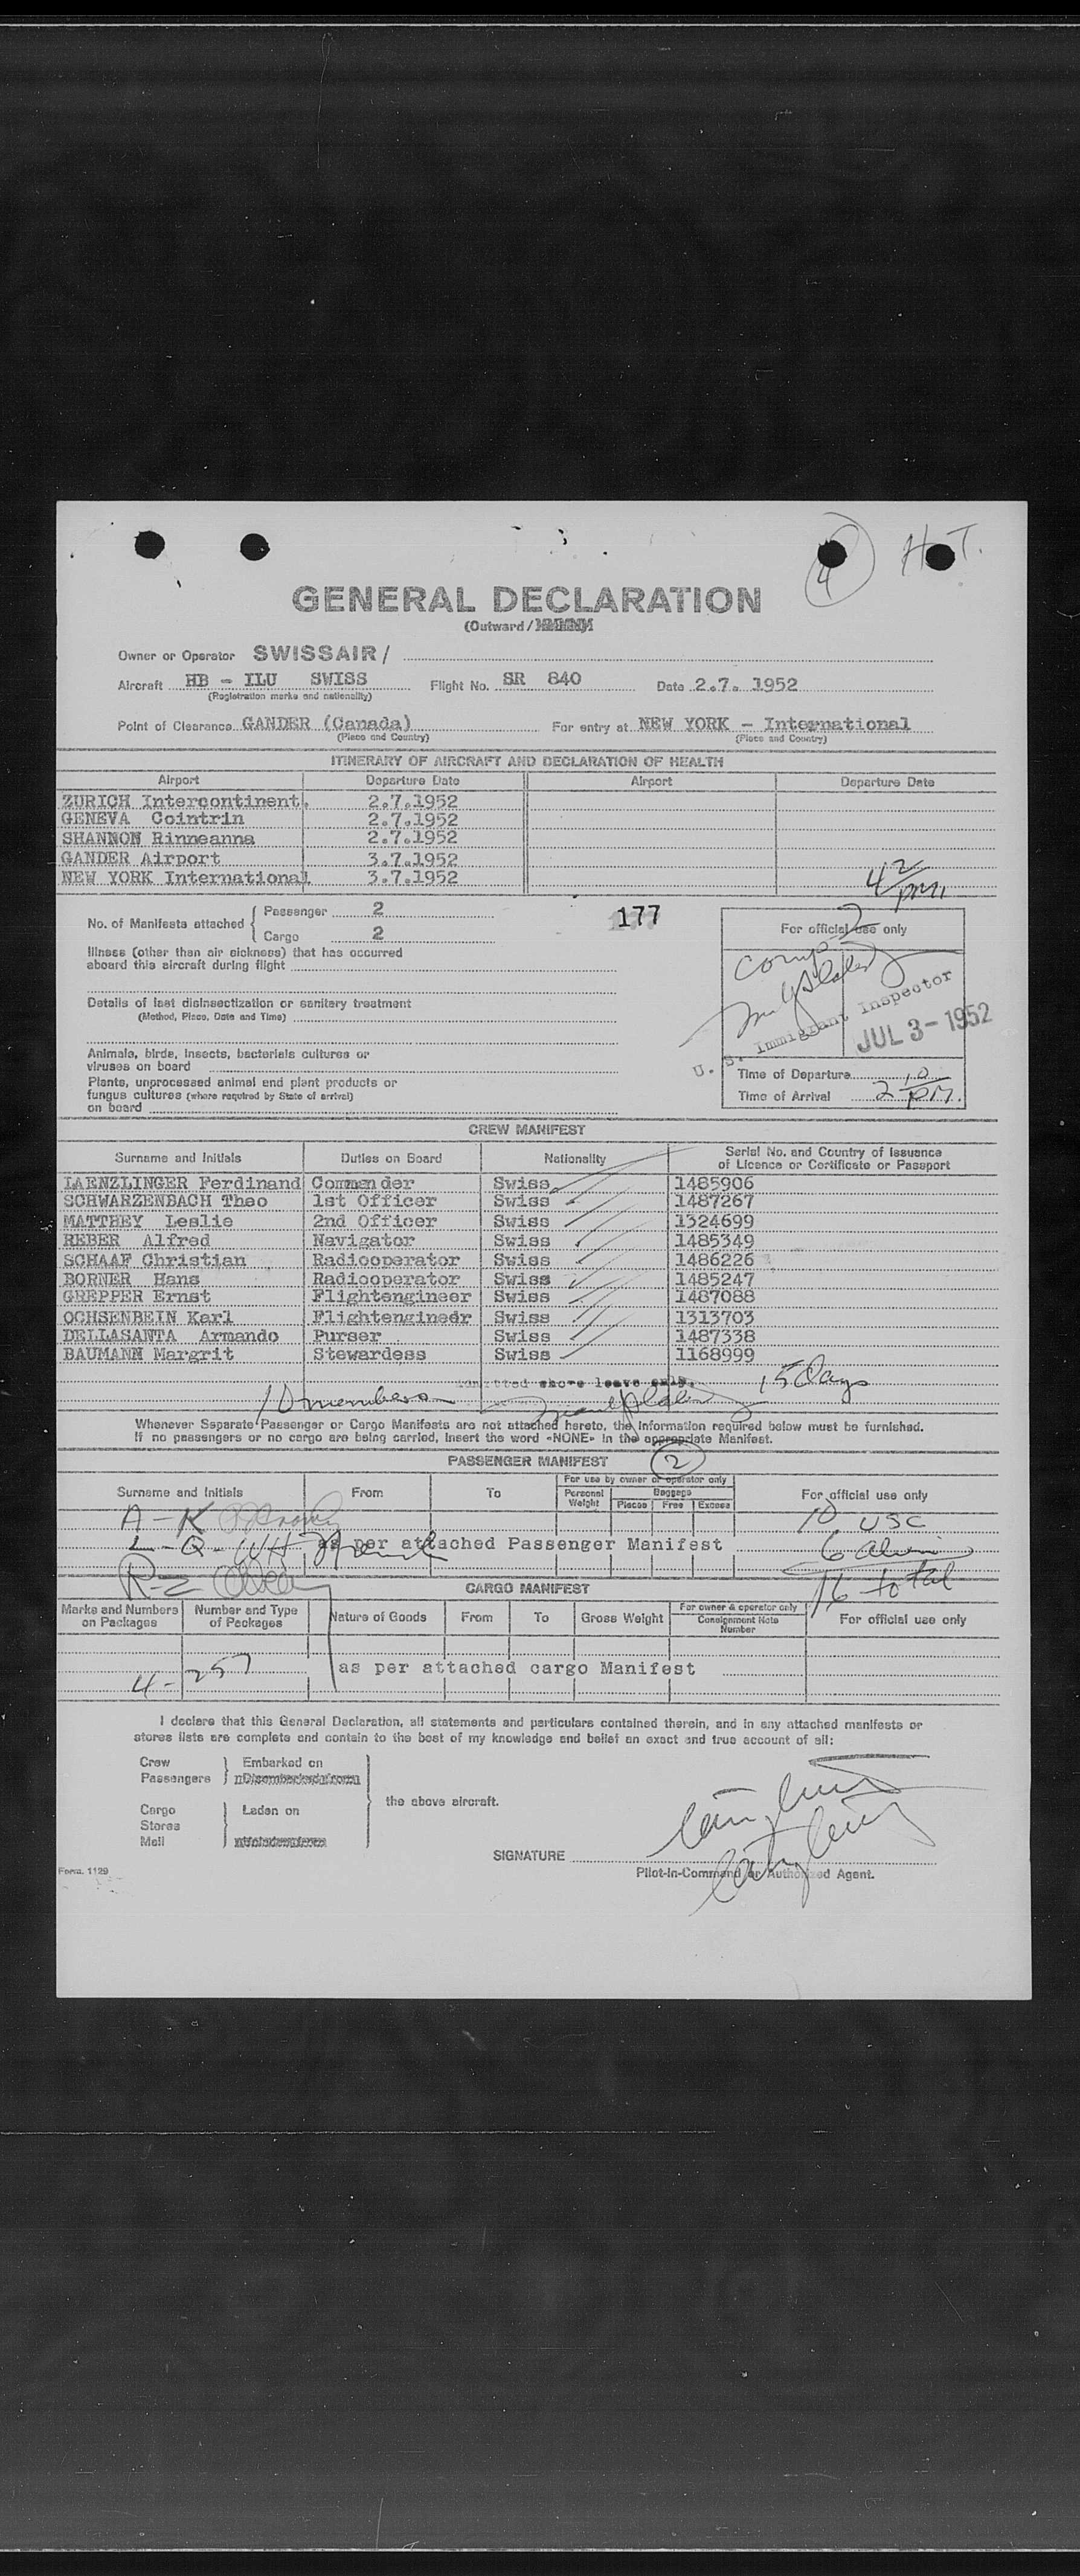 4
H.T.
GENERAL DECLARATION
(Outward /
Owner or Operator SWISSAIR/
Aircraft HB - ILU SWISS Flight No. SR 840 Date 2.7. 1952
(Registration marks and nationality)
Point of Clearance GANDER (Canada) For entry at NEW YORK - International
(Place and Country) (Place and Country)
ITINERARY OF AIRCRAFT AND DECLARATION OF HEALTH
Airport Departure Date Airport Departure Date
ZURICH Intercontinent. 2.7.1952
GENEVA Cointrin 2.7.1952
SHANNON Rinneanna 2.7.1952
GANDER Airport 3.7.1952
NEW YORK International 3.7.1952
No. of Manifests attached { Passenger 2
Cargo 2
177
For official use only
Illness (other than air sickness) that has occurred
aboard this aircraft during flight
Details of last disinsectization or sanitary treatment
(Method, Place, Date and Time)
U. S. Immigrant Inspector
JUL 3 - 1952
Animals, birds, insects, bacterials cultures or
viruses on board
Plants, unprocessed animal and plant products or
fungus cultures (where required by State of arrival)
on board
Time of Departure
Time of Arrival 2 10 PM.
CREW MANIFEST
Surname and Initials Duties on Board Nationality Serial No. and Country of Issuance
of Licence or Certificate or Passport
LAENZLINGER Ferdinand Commander Swiss 1485906
SCHWARZENBACH Theo 1st Officer Swiss 1487267
MATTHEY Leslie 2nd Officer Swiss 1324699
REBER Alfred Navigator Swiss 1485349
SCHAAF Christian Radiooperator Swiss 1486226
BORNER Hans Radiooperator Swiss 1485247
GREPPER Ernst Flightengineer Swiss 1487088
OCHSENBEIN Karl Flightenginedr Swiss 1313703
DELLASANTA Armando Purser Swiss 1487338
BAUMANN Margrit Stewardess Swiss 1168999
admitted shore leave only. 15 Days
10 members
Whenever Separate Passenger or Cargo Manifests are not attached hereto, the information required below must be furnished.
If no passengers or no cargo are being carried, insert the word «NONE» in the appropriate Manifest.
PASSENGER MANIFEST 2
Surname and Initials From To For use by owner or operator only For official use only
Personal Weight Baggage Pieces Free Excess
A - K 10 USC
L - Q - WH as per attached Passenger Manifest 6 alien
R-Z 16 total
CARGO MANIFEST
Marks and Numbers on Packages Number and Type of Packages Nature of Goods From To Gross Weight For owner & operator only Consignment Note Number For official use only
4 - 257 as per attached cargo Manifest
I declare that this General Declaration, all statements and particulars contained therein, and in any attached manifests or
stores lists are complete and contain to the best of my knowledge and belief an exact and true account of all:
Crew } Embarked on
Passengers
the above aircraft.
Cargo } Laden on
Stores
Mail
SIGNATURE
Pilot-in-Command or Authorized Agent.
Form. 1129